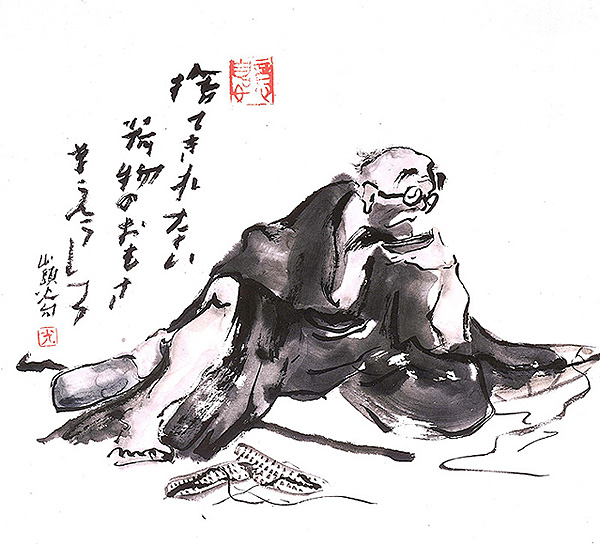 捨てきれない
荷物のおもさ
まえうしろ
山頭火句